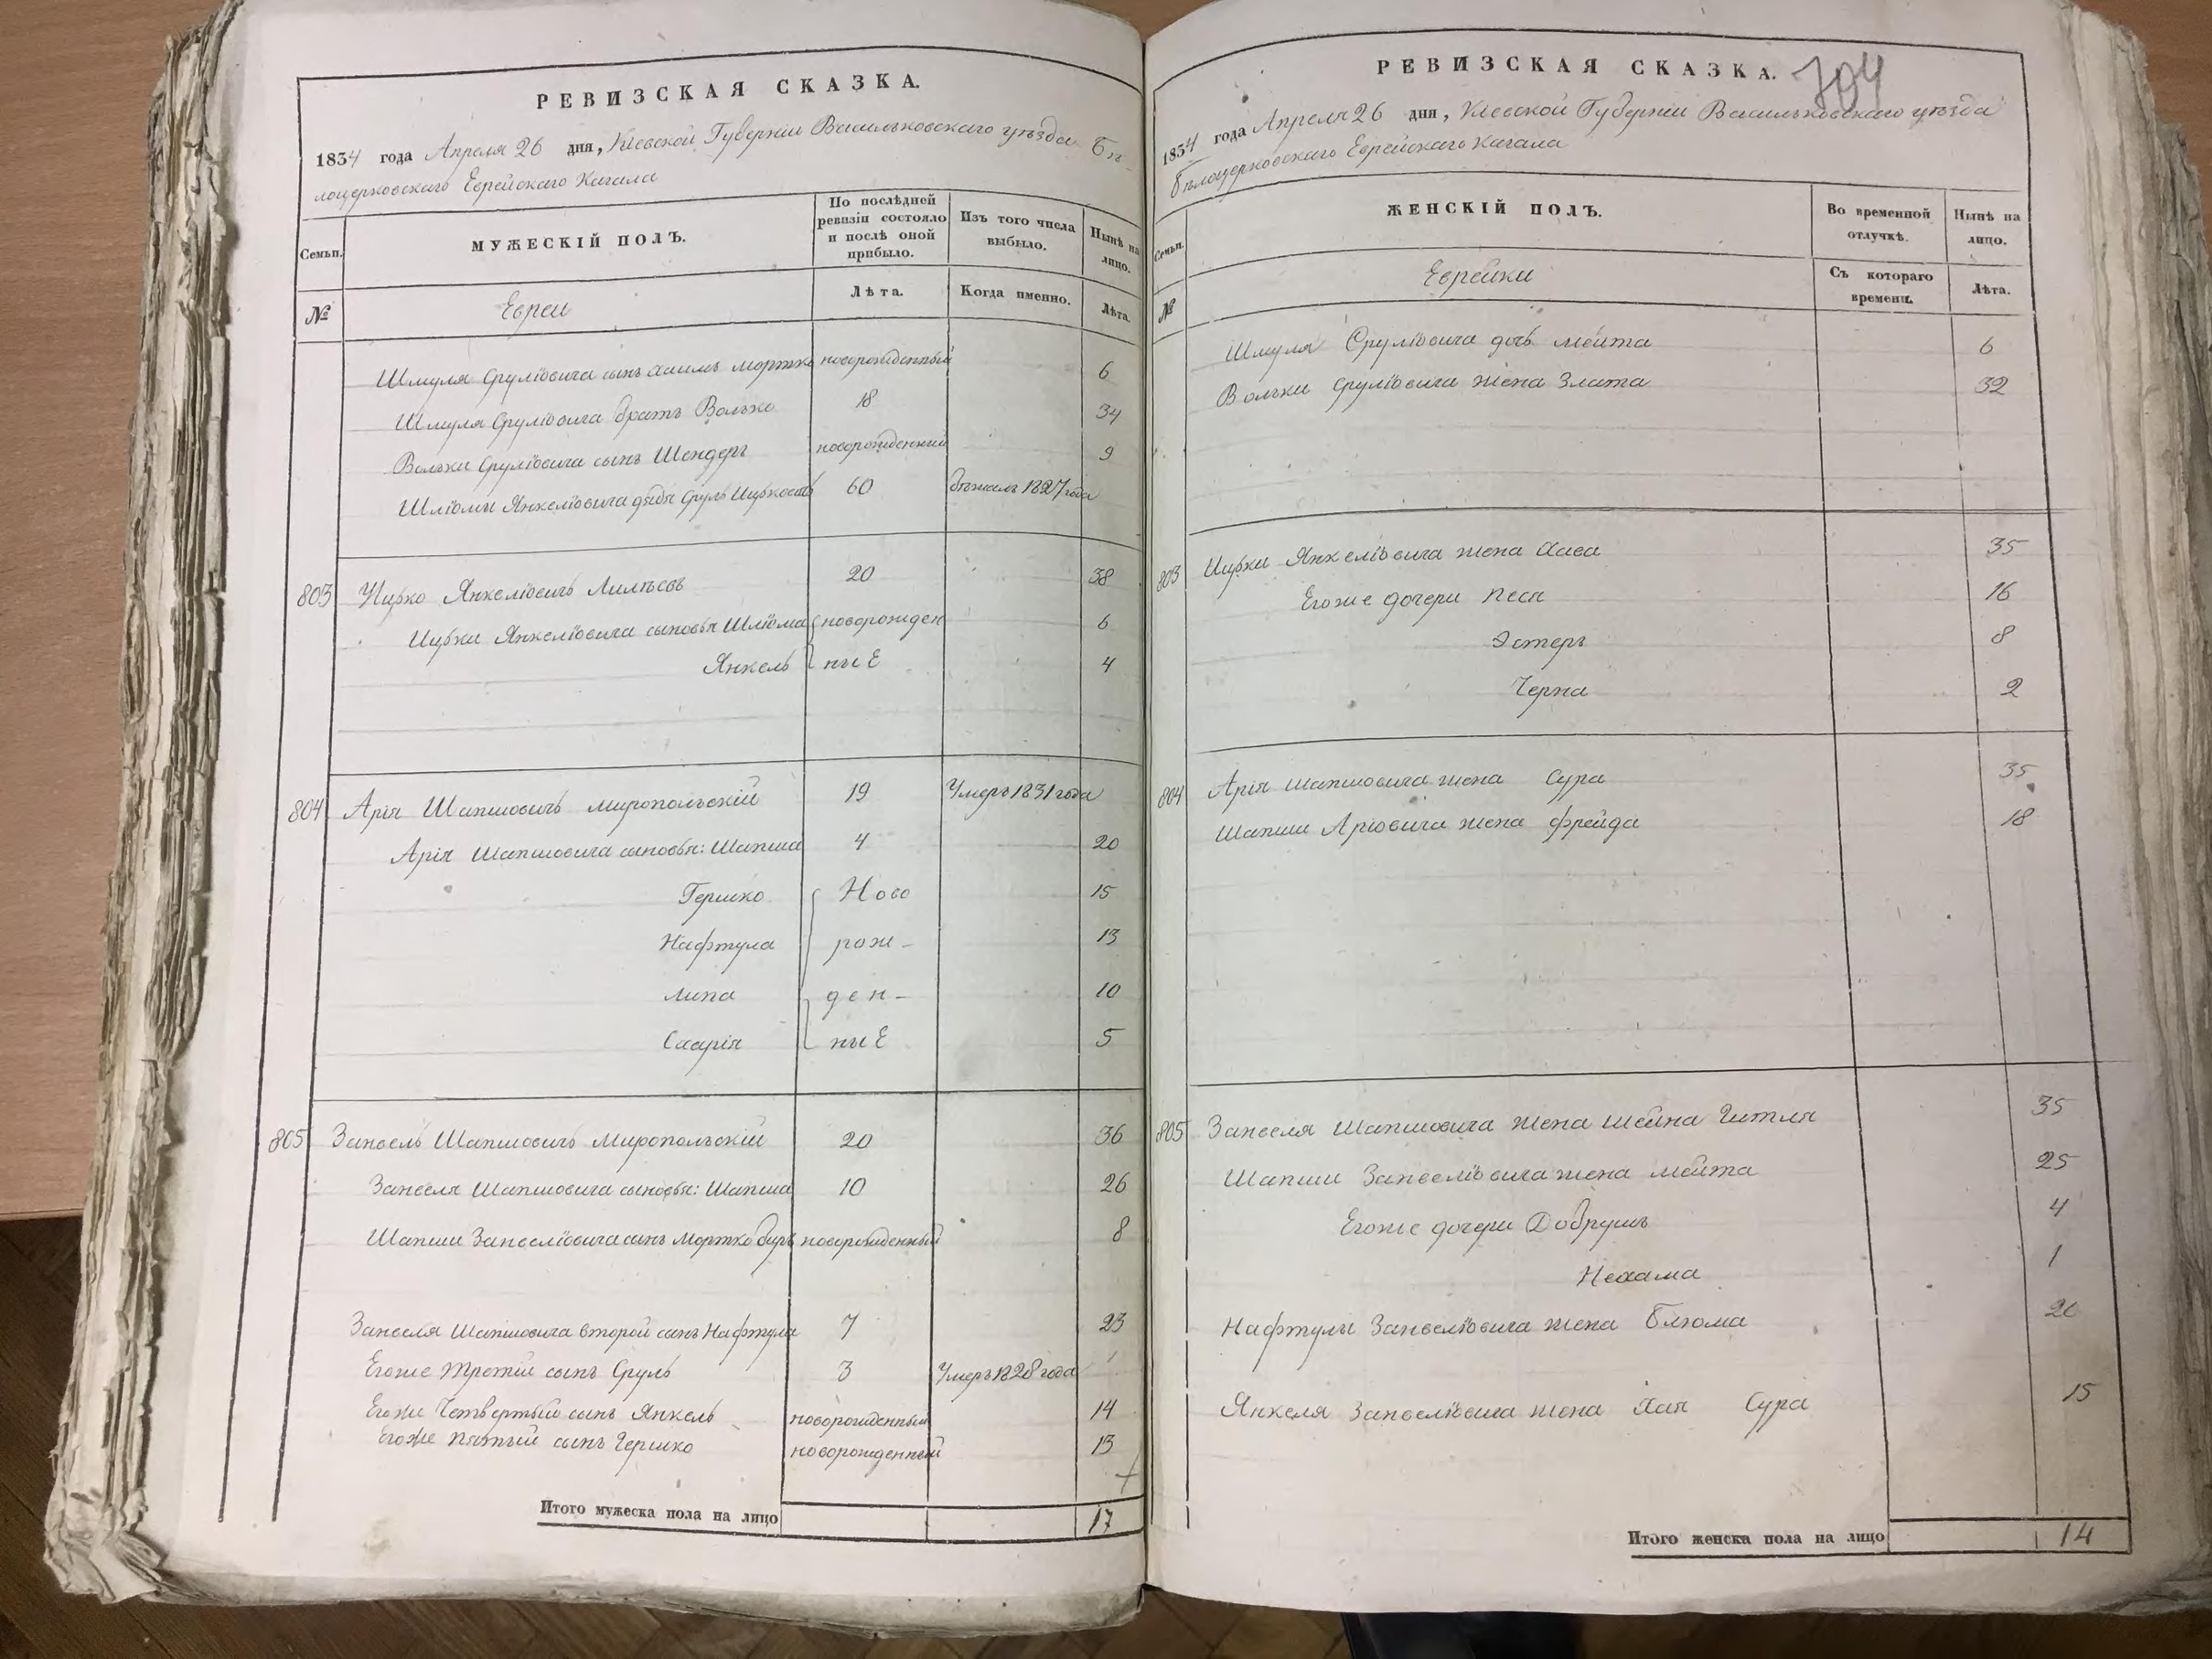 РЕВИЗСКАЯ СКАЗКА.
1834 года Апреля 26 дня, Киевской Губернии Васильковскаго уезда Бѣ
лоцерковскаго Еврейскаго Кагала
Семьи.
МУЖЕСКІЙ ПОЛЪ.
По послѣдней ревизіи состояло и послѣ оной прибыло.
Изъ того числа выбыло.
Нынѣ на лицо.
№
Евреи
Лѣта.
Когда именно.
Лѣта.
Шмуля Сруліовича сынъ Хаимъ Мортко новорожденный 6
Шмуля Сруліовича братъ Волько 18 34
Вольки Сруліовича сынъ Шендеръ новорожденный 9
Шліомы Янкеліовича дядя Сруль 60 бежалъ 1827 года
803 Ицко Янкеліовичъ 20 38
Ицки Янкеліовича сыновья Шліома новорожден 6
Янкель ныЕ 4
804 Арія Шапшовичъ Миропольскій 19 Умеръ 1831 года
Арія Шапшовича сыновья: Шапша 4 20
Гершко Ново 15
Нафтула рож- 13
Липа ден- 10
ныЕ 5
805 Занвель Шапшовичъ Миропольскій 20 36
Занвеля Шапшовича сыновья: Шапша 10 26
Шапши Занвеліовича сынъ Мортко Беръ новорожденный 8
Занвеля Шапшовича второй сынъ Нафтула 7 23
Егоже Третій сынъ Сруль 3 Умеръ 1828 года
Егоже Четвертый сынъ Янкель новорожденный 14
Егоже пятый сынъ Гершко новорожденный 13
Итого мужеска пола на лицо 17
РЕВИЗСКАЯ СКАЗКА. 704
1834 года Апреля 26 дня, Киевской Губерніи Васильковскаго уезда
Бѣлоцерковскаго Еврейскаго Кагала
Семьи.
ЖЕНСКІЙ ПОЛЪ.
Во временной отлучкѣ.
Нынѣ на лицо.
№
Еврейки
Съ котораго времени.
Лѣта.
Шмуля Сруліовича дочь Мейта 6
Вольки Сруліовича жена Злата 32
803 Ицки Янкеліовича жена Хава 35
Егоже дочери Песя 16
Эстеръ 8
Черна 2
804 Арія Шапшовича жена Сура 35
Шапши Аріовича жена Фрейда 18
805 Занвеля Шапшовича жена Шейна Гитля 35
Шапши Занвеліовича жена Мейта 25
Егоже дочери Добрушъ 4
Нехама 1
Нафтулы Занвеліовича жена Блюма 20
Янкеля Занвеліовича жена Хая Сура 15
Итого женска пола на лицо 14